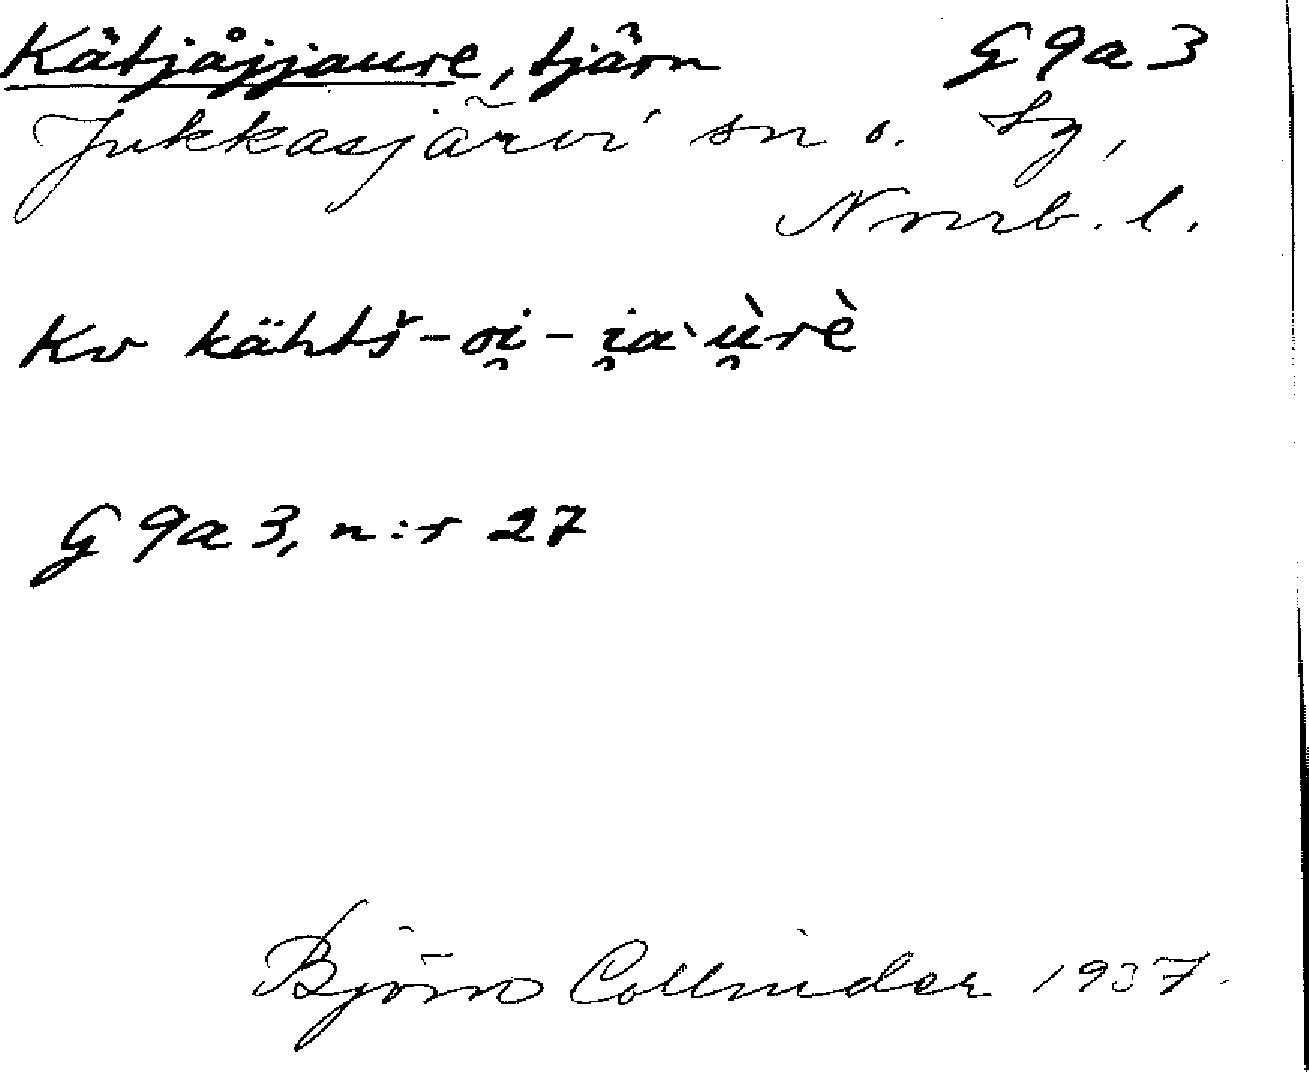 Kätjåjjaure, tjärn G 9a 3
Jukkasjärvi sn o. tg,
Norrb. l.
Kv kähtš-oi̯-i̯a`ù̯rè
G 9a 3, n:r 27
Björn Collinder 1937.